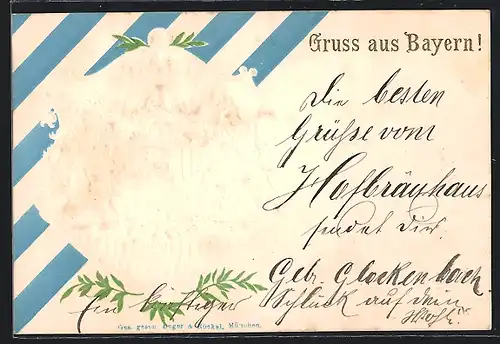 Gruss aus Bayern!
Die besten
Grüsse vom
Hofbräuhaus
sendet dir
Geb. Glockenbach
Ein kräftiger Schluck auf dem
Ges. gesch. Röckel, München.